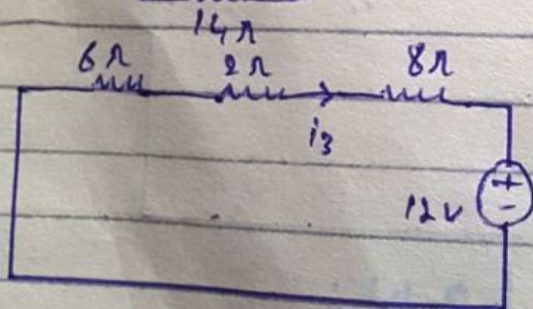 14Ω
6Ω 2Ω 8Ω
i3
12V
+
-